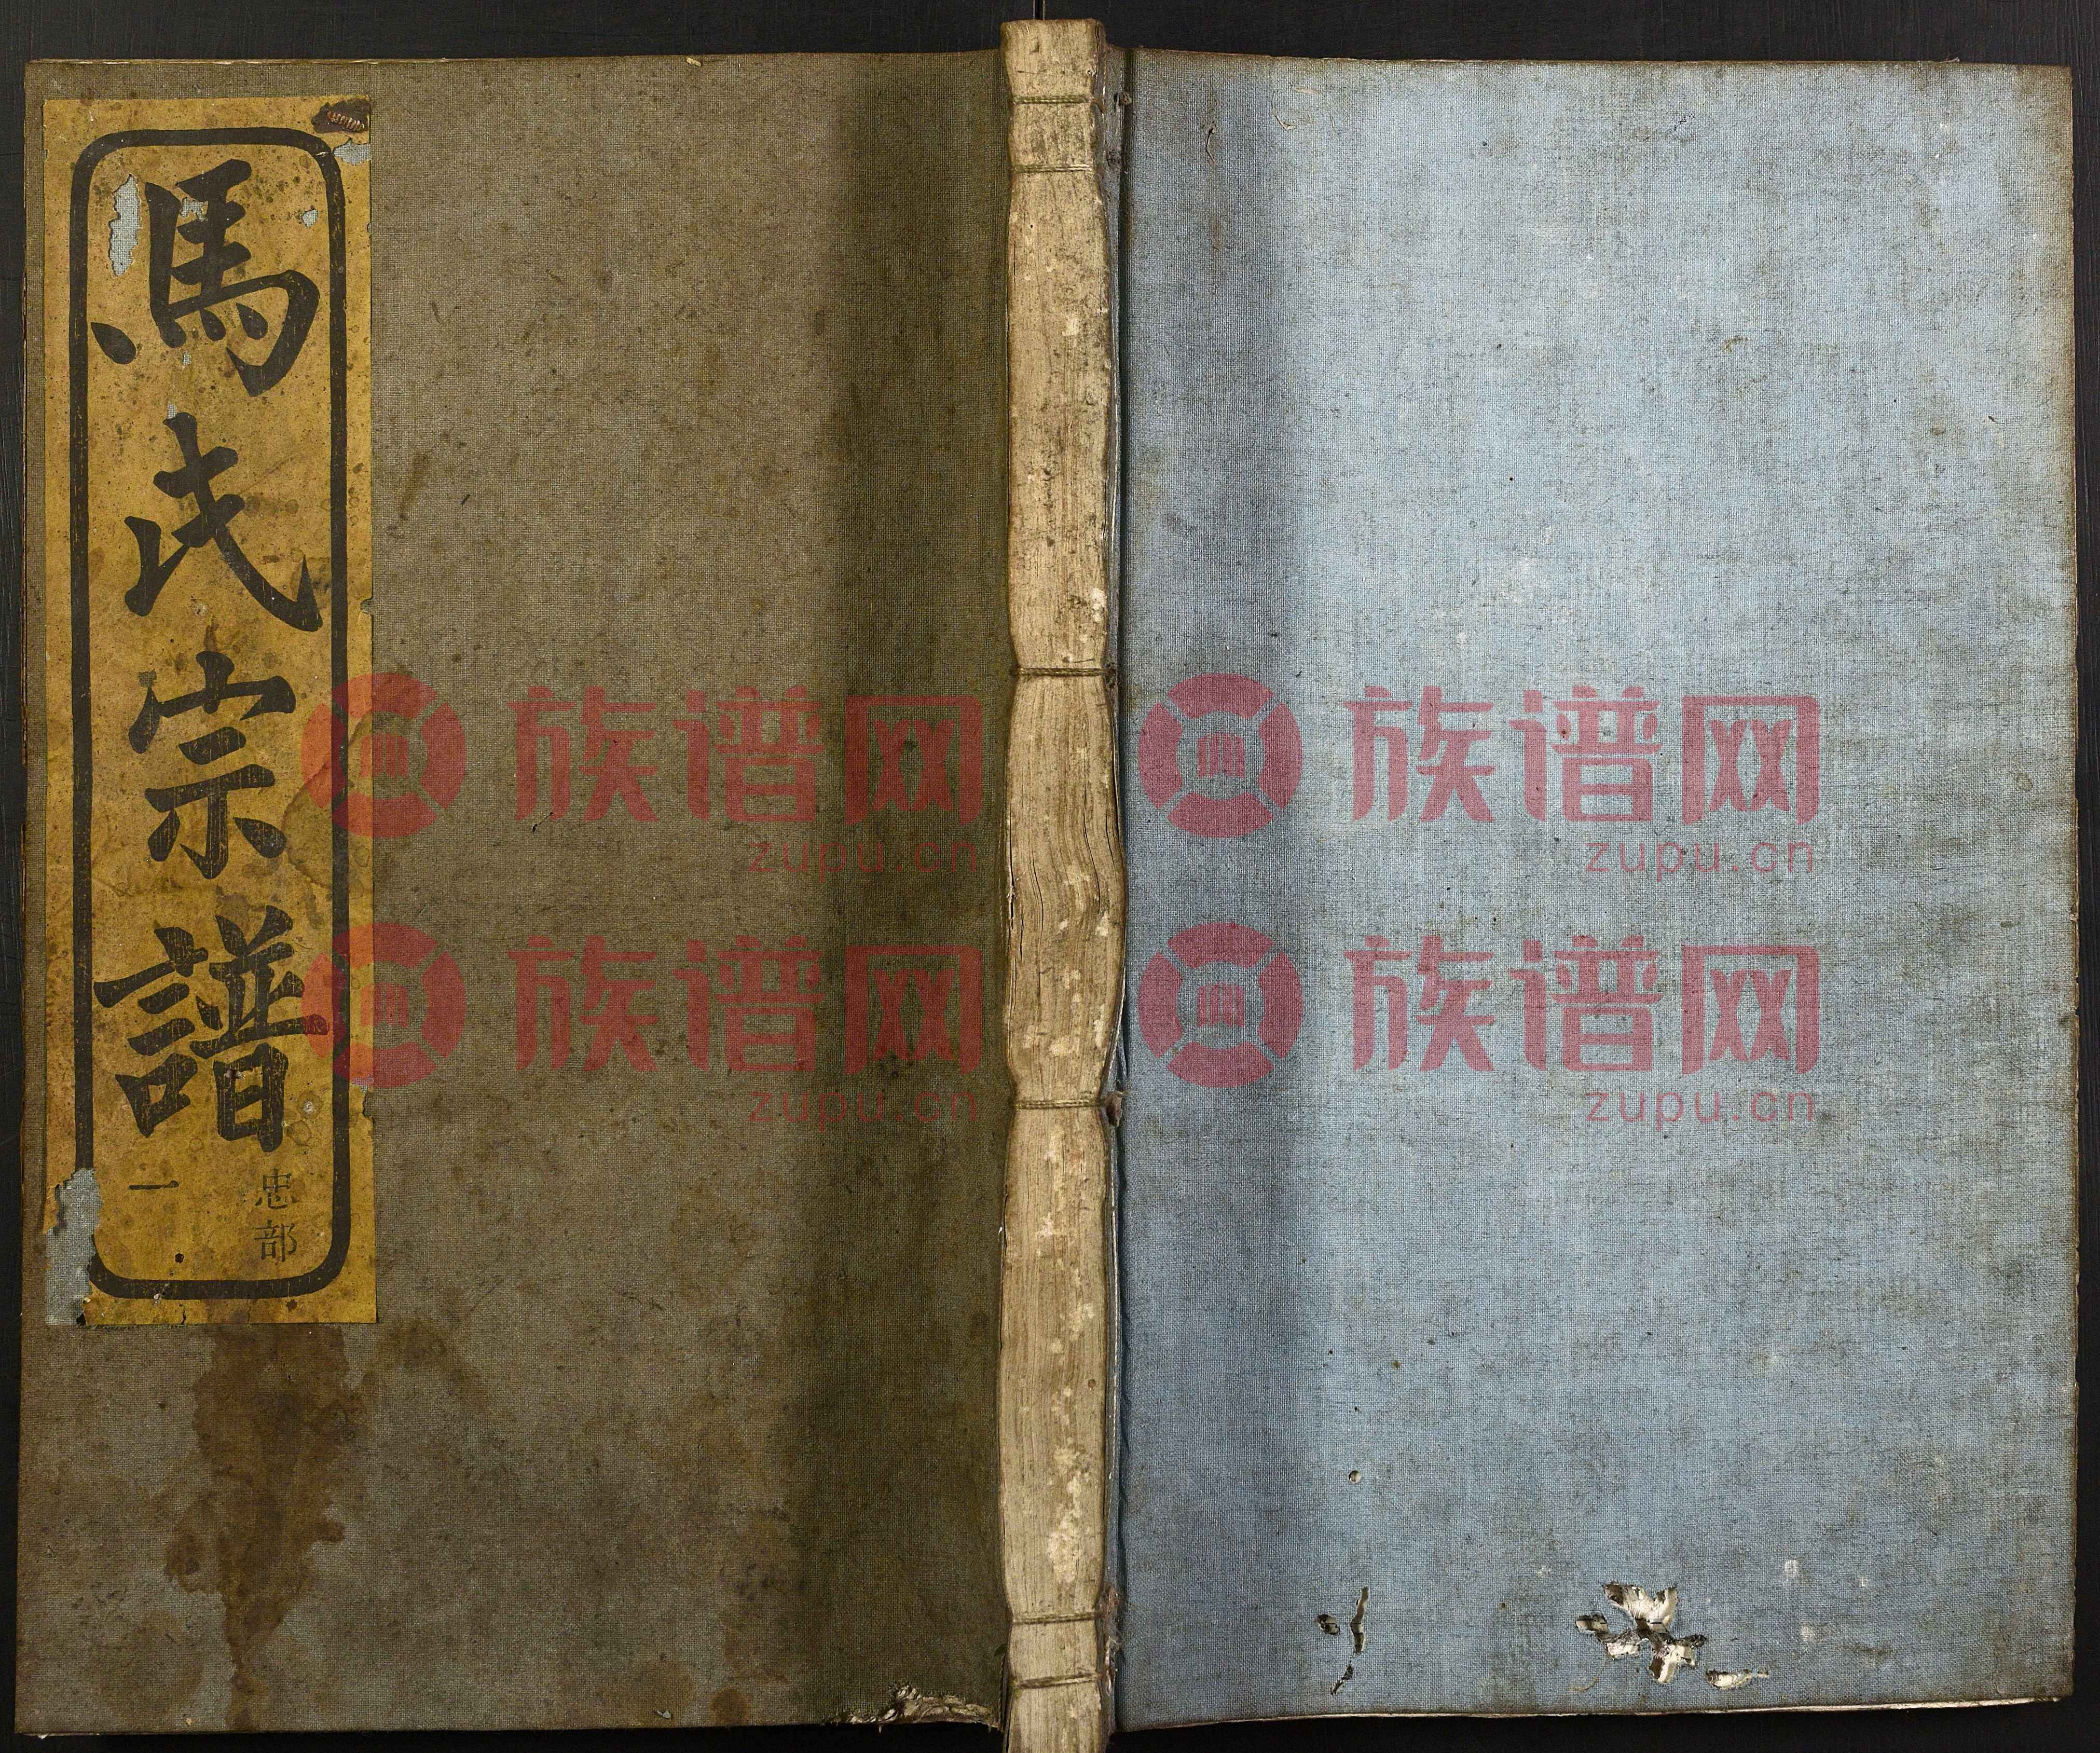 馬氏宗譜
忠部
一
族谱网
zupu.cn
族谱网
zupu.cn
族谱网
zupu.cn
族谱网
zupu.cn